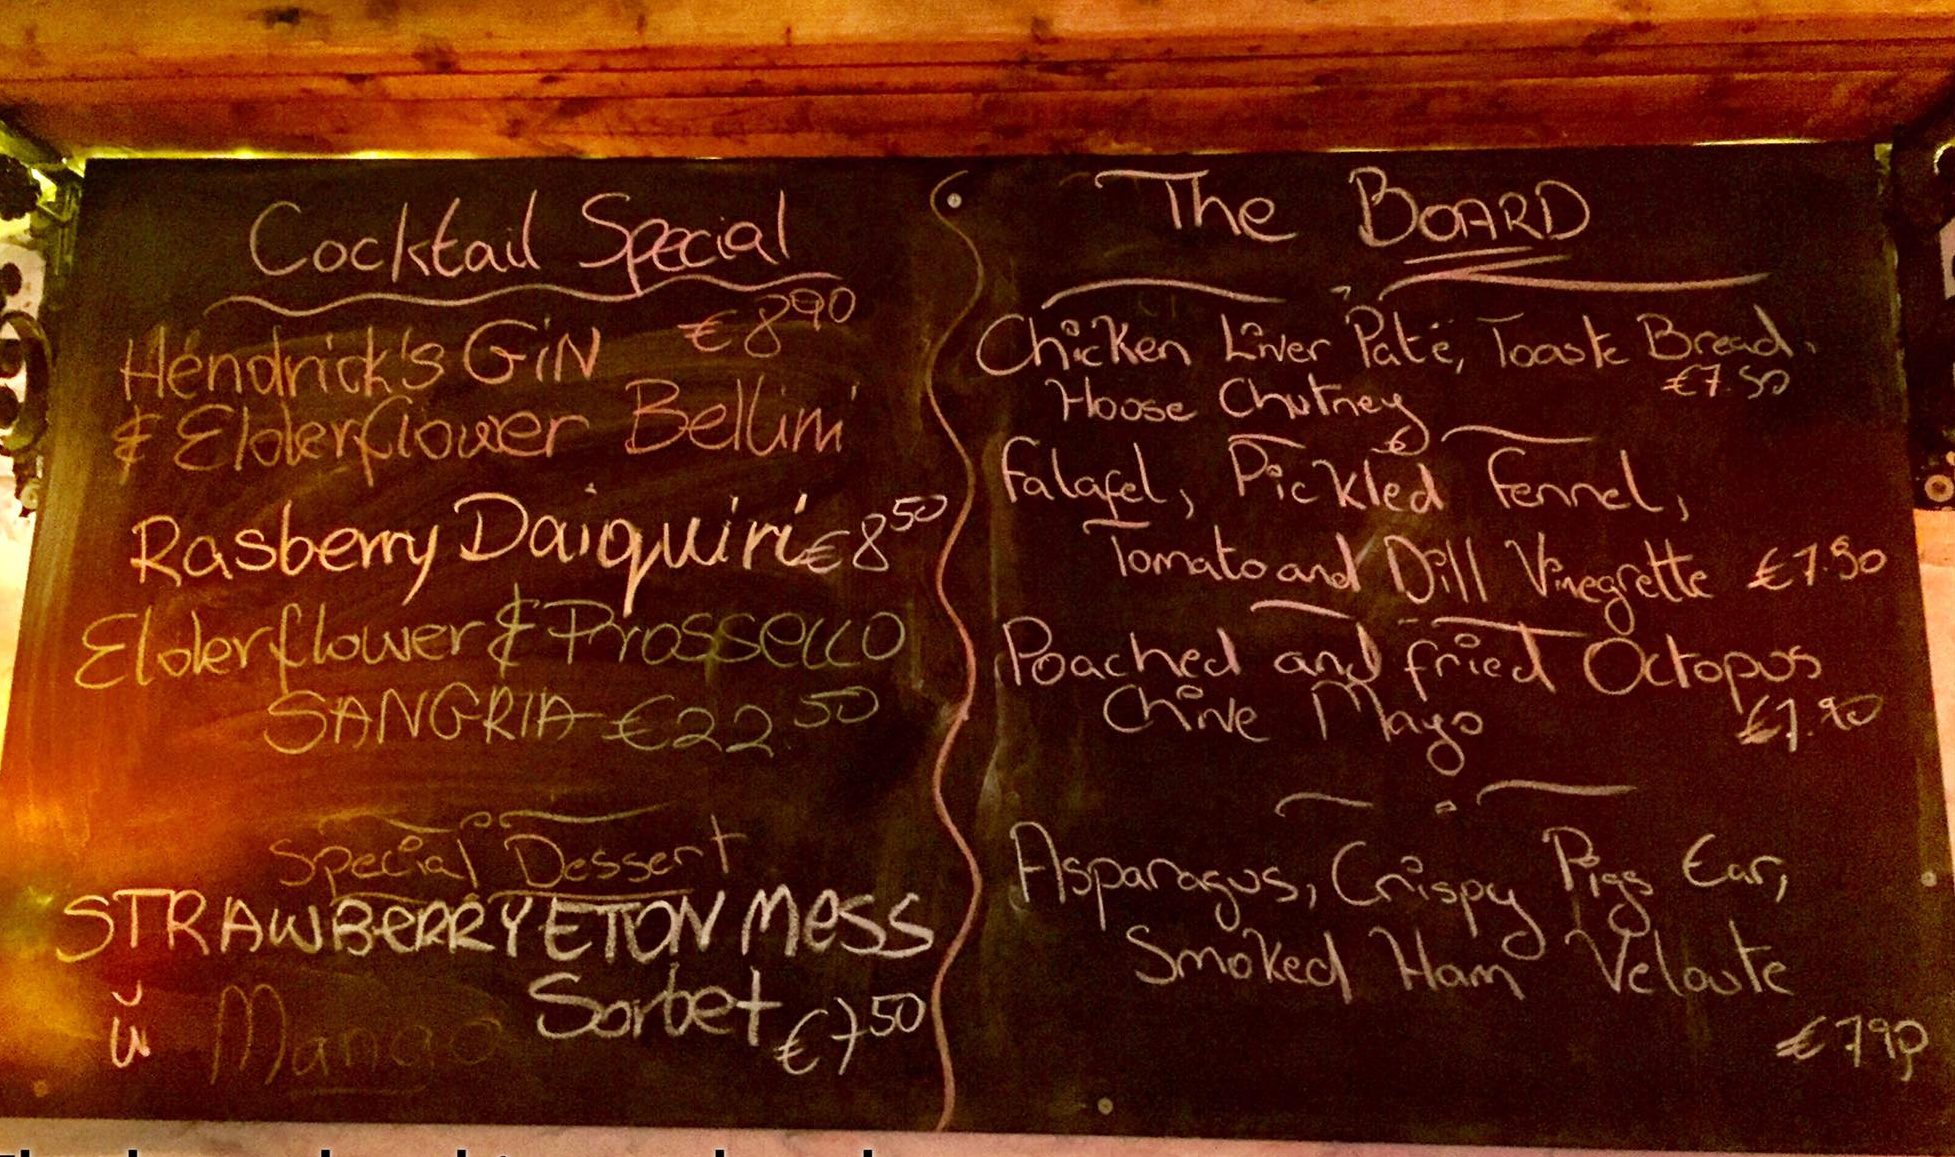 Cocktail Special
Hendrick's GiN €8.90
& Elderflower Bellini
Rasberry Daiquiri €8.50
Elderflower & Prossecco
SANGRIA €22.50
Special Dessert
STRAWBERRY ETON MESS
Sorbet €7.50
Mango
The BOARD
Chicken Liver Pate, Toaste Bread,
€7.50
House Chutney
Falafel, Pickled Fennel,
Tomato and Dill Vinegrette €7.50
Poached and fried Octopus
Chive Mayo €7.90
Asparagus, Crispy Pigs Ear,
Smoked Ham Veloute
€7.90